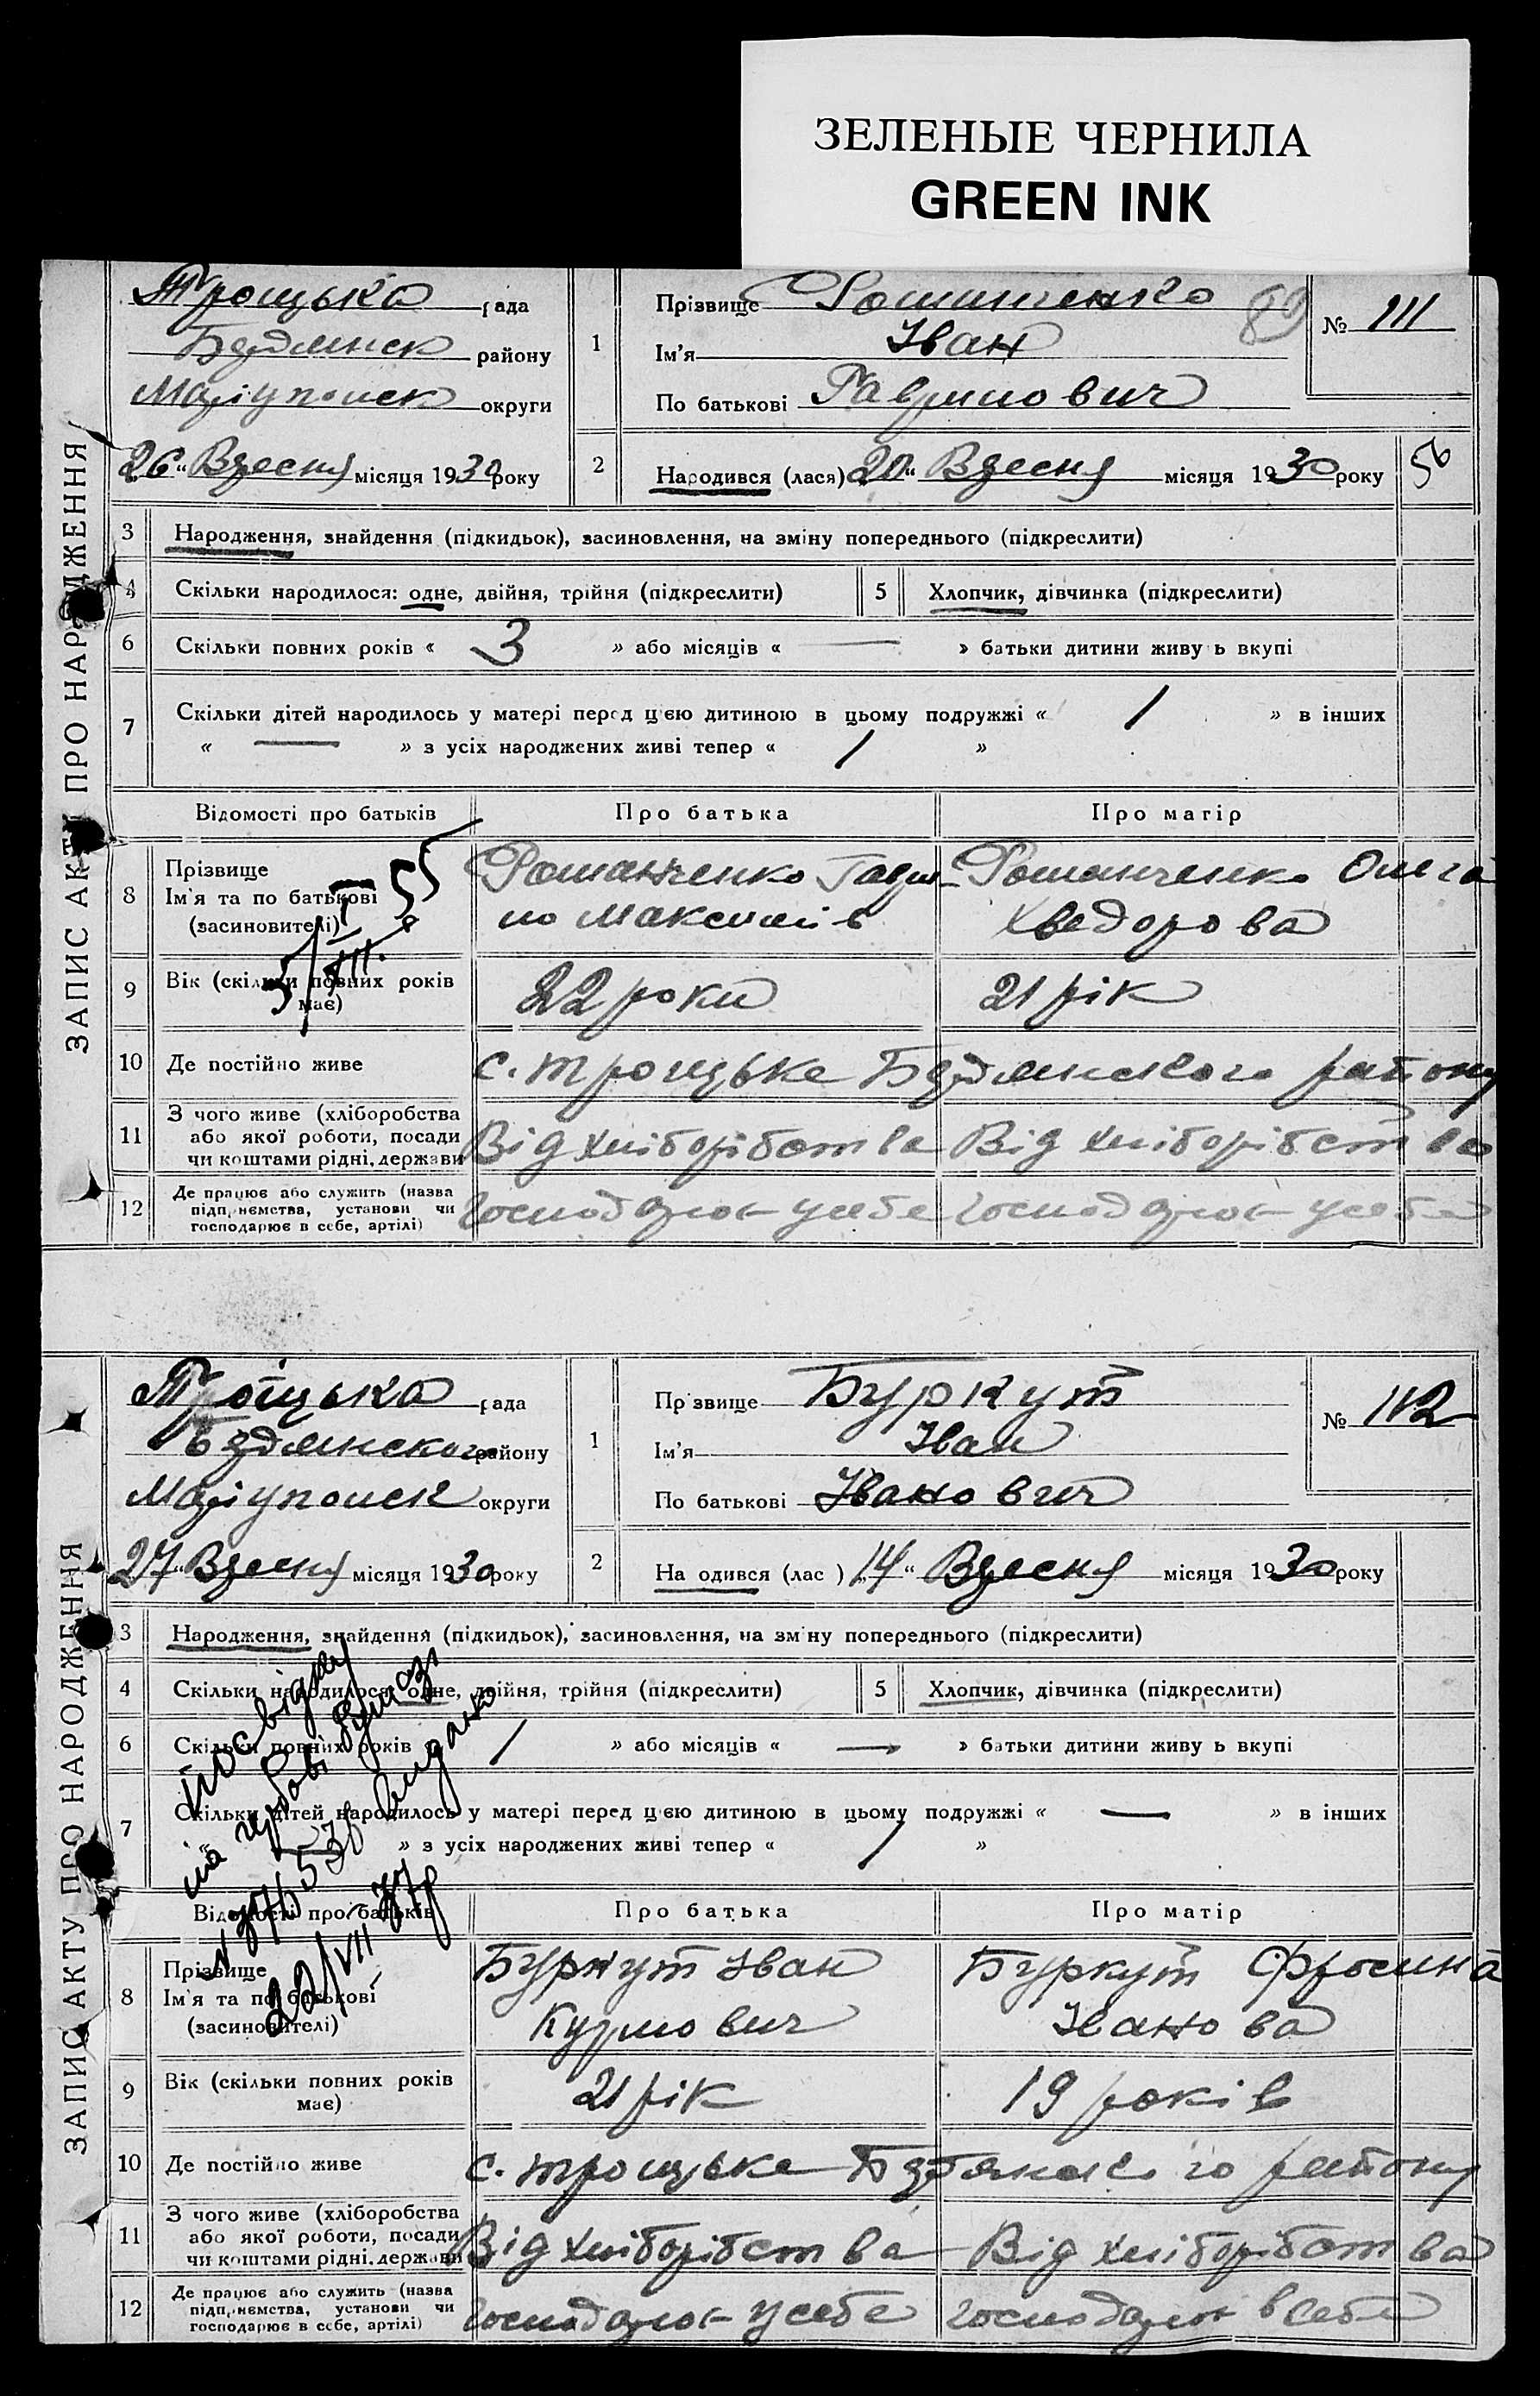 ЗЕЛЕНЫЕ ЧЕРНИЛА
GREEN INK
ЗАПИС АКТУ ПРО НАРОДЖЕННЯ
Троицька рада
района
Маріупольск округи
1 Прізвище Романченко 89
Ім'я Іван
По батькові Гаврилович
№ 111
26 Вресня місяця 1930 року
2 Народився (лася) 20 Вресня місяця 1930 року 56
3 Народження, знайдення (підкидьок), засиновлення, на зміну попереднього (підкреслити)
4 Скільки народилося: одне, двійня, трійня (підкреслити) 5 Хлопчик, дівчинка (підкреслити)
6 Скільки повних років « 3 » або місяців « — » батьки дитини живу ь вкупі
7 Скільки дітей народилось у матері перед цею дитиною в цьому подружжі « 1 » в інших
« — » з усіх народжених живі тепер « 1 »
Відомості про батьків Про батька Про матір
8 Прізвище Романченко Гаври- Романченко Олга
Ім'я та по батькові ло Максимів Хведорова
(засиновителі)
9 Вік (скільки повних років 22 роки 21 рік
має)
10 Де постійно живе с. Троицьке района
11 З чого живе (хліборобства
або якої роботи, посади Від хліборібства Від хліборібства
чи коштами рідні, держави
12 Де працює або служить (назва
підприємства, установи чи у себе у себе
господарює в себе, артілі)
ЗАПИС АКТУ ПРО НАРОДЖЕННЯ
Троіцька рада
району
Маріупольск округи
1 Пр звище Буркут
Ім'я Іван
По батькові Іванович
№ 112
27 Вресня місяця 1930 року
2 На одився (лас ) 14 Вресня місяця 1930 року
3 Народження, знайдення (підкидьок), засиновлення, на зм ну попереднього (підкреслити)
4 Скільки народилося: одне, двійня, трійня (підкреслити) 5 Хлопчик, дівчинка (підкреслити)
6 Скільки повних років 1 » або місяців « — » батьки дитини живу ь вкупі
7 Скільки дітей народилось у матері перед цею дитиною в цьому подружжі « — » в інших
» з усіх народжених живі тепер « 1 »
Відомості про батьків Про батька Про матір
8 Прізвище Буркут Іван Буркут Фросина
Ім'я та по батькові Іванова
(засиновителі)
9 Вік (скільки повних років 21 рік 19 років
має)
10 Де постійно живе с. Троицьке
11 З чого живе (хліборобства
або якої роботи, посади Від хліборібства Від хліборібства
чи коштами рідні, держави
12 Де працює або служить (назва
підприємства, установи чи у себе в себе
господарює в себе, артілі)